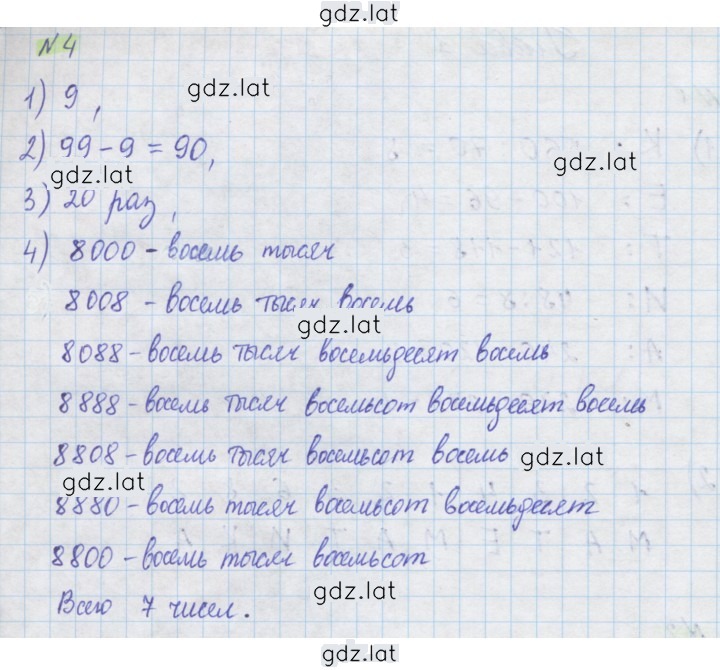 gdz.lat
№4
1) 9,
gdz.lat
2) 99 - 9 = 90,
gdz.lat
gdz.lat
3) 20 раз,
4) 8000 - восемь тысяч
8008 - восемь тысяч восемь
gdz.lat
8088 - восемь тысяч восемьдесят восемь
8888 - восемь тысяч восемьсот восемьдесят восемь
8808 - восемь тысяч восемьсот восемь
gdz.lat
gdz.lat
8880 - восемь тысяч восемьсот восемьдесят
8800 - восемь тысяч восемьсот
gdz.lat
Всего 7 чисел.
gdz.lat